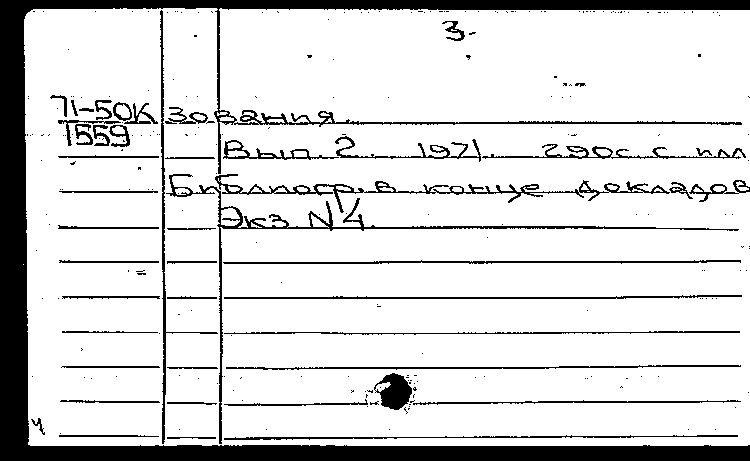 3.
71-50К зования.
1559
Вып. 2. 1971. 290с. с илл
Библиогр. в конце докладов
Экз. N4.
ч